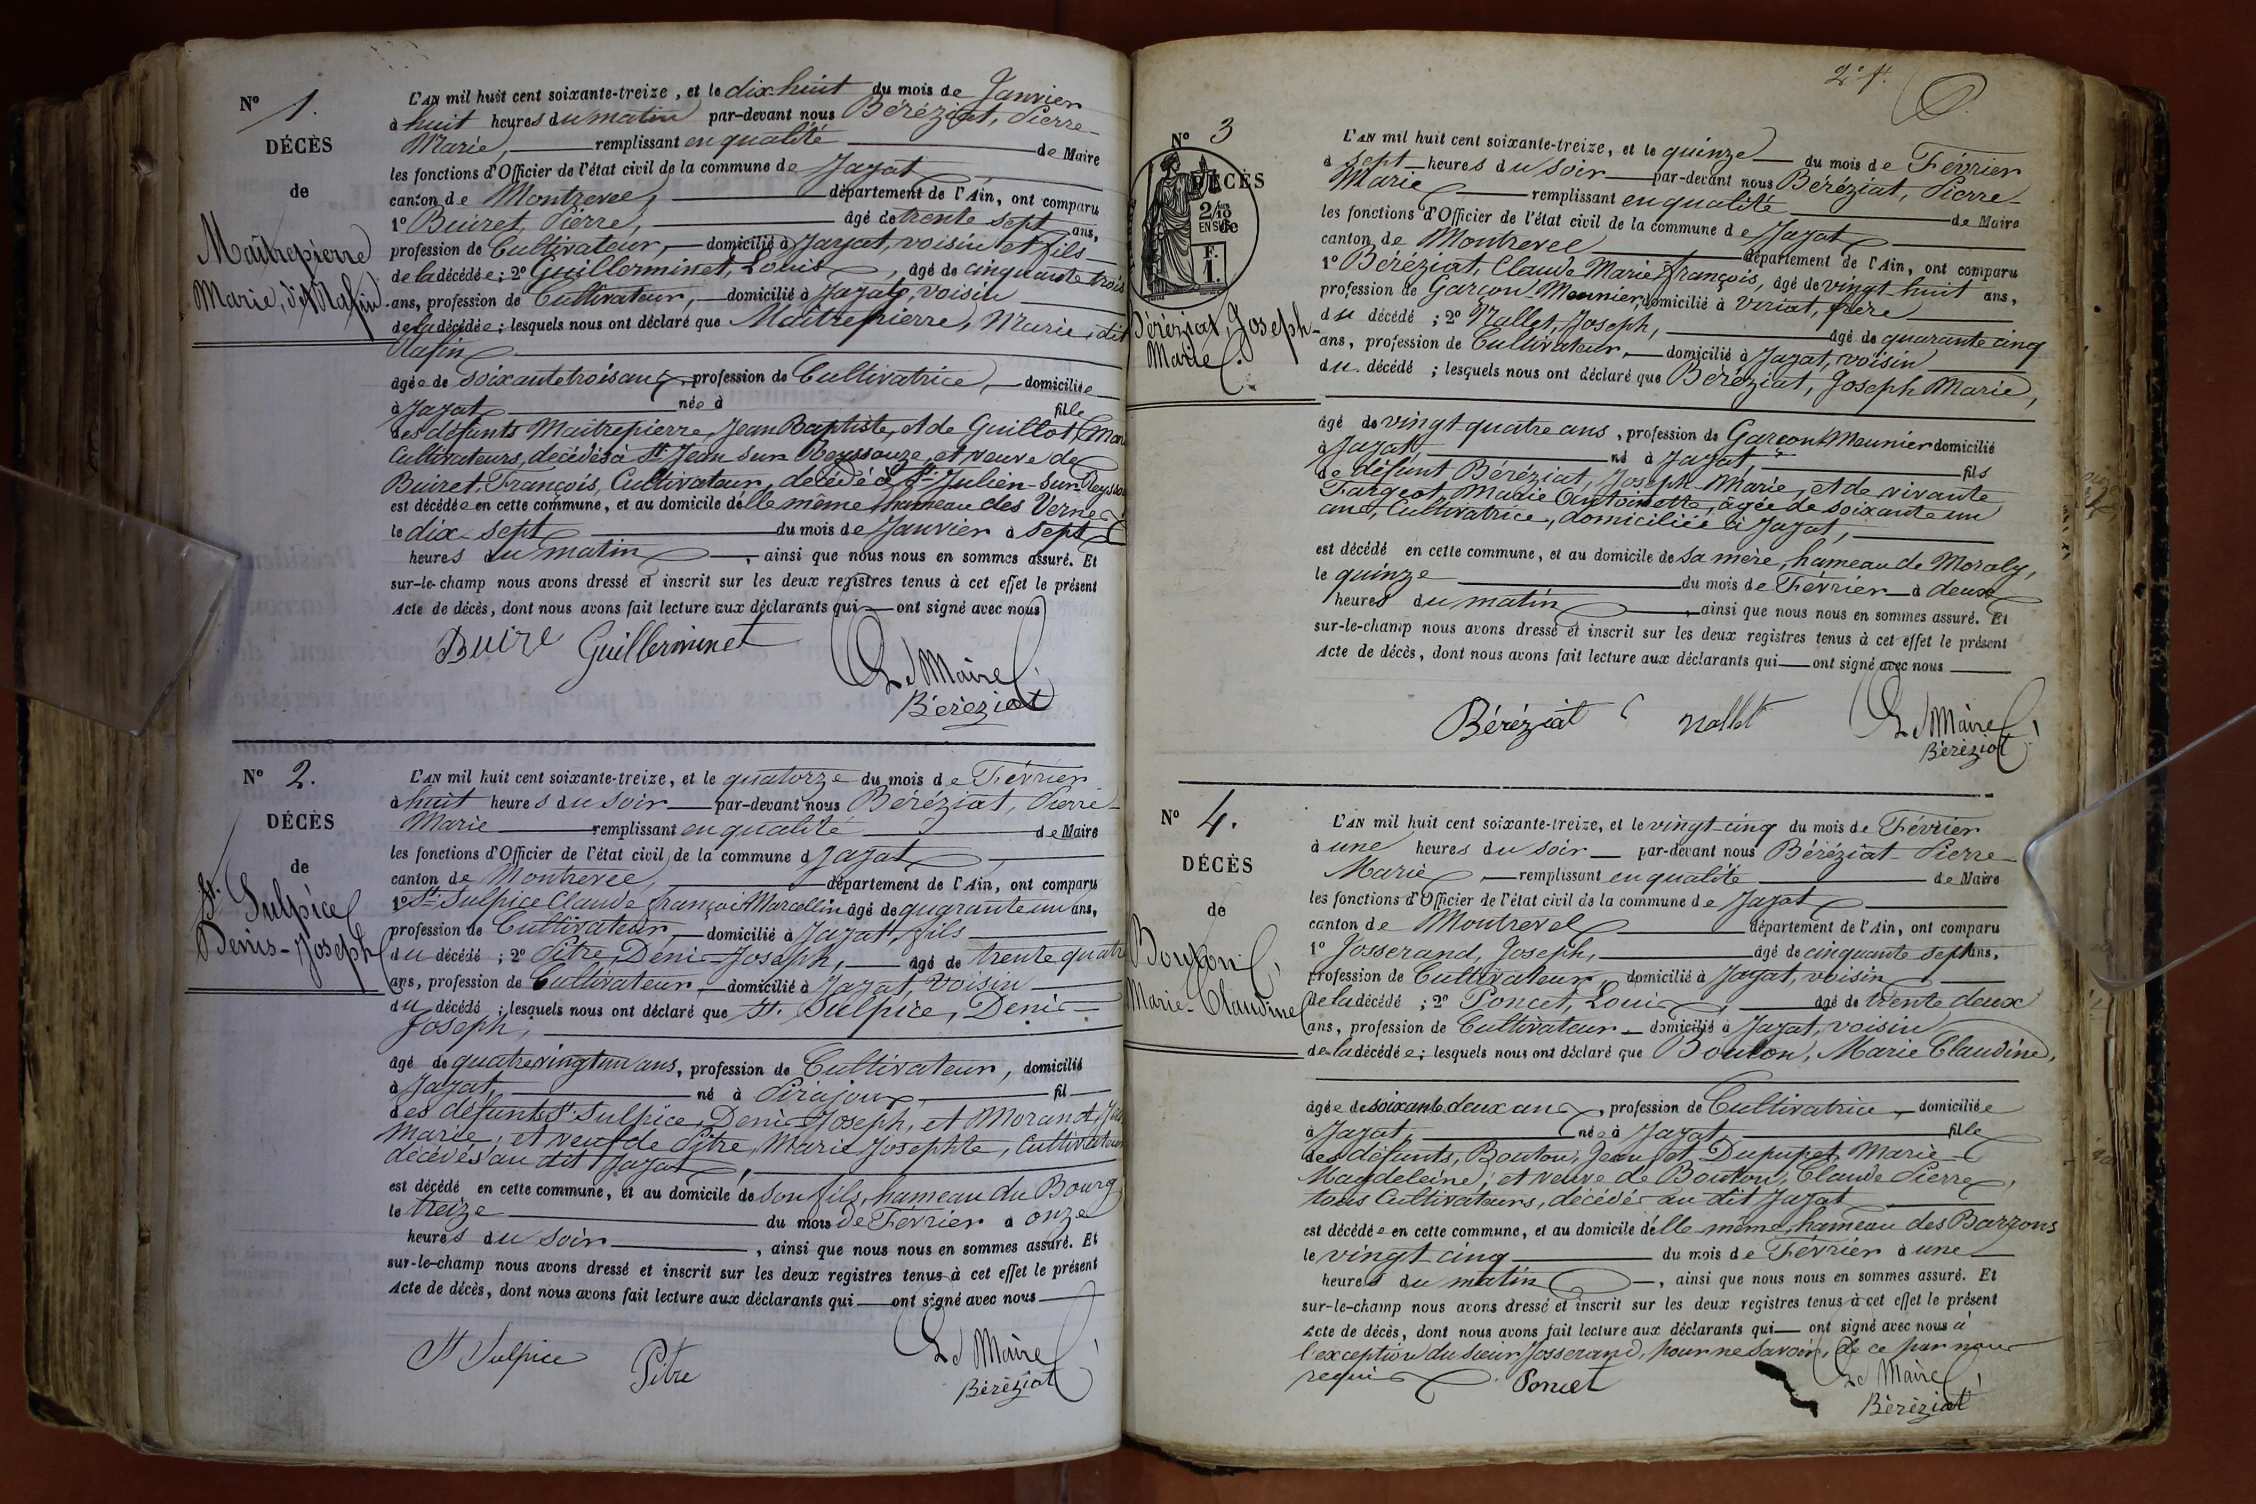 N° 1.
DÉCÈS
de
Maîtrepierre
Marie, dit Rafin
L'AN mil huit cent soixante-treize, et le dix huit du mois de Janvier
à huit heures du matin par-devant nous Béréziat, Pierre-
Marie, remplissant en qualité de Maire
les fonctions d'Officier de l'état civil de la commune de Jayat
canton de Montrevel, département de l'Ain, ont comparu
1° Buiret, Pierre, âgé de trente sept ans,
profession de Cultivateur, domicilié à Jayat, voisin et fils
de la décédée; 2° Guillerminet, Louis, âgé de cinquante trois
ans, profession de Cultivateur, domicilié à Jayat, voisin
de la décédée; lesquels nous ont déclaré que Maîtrepierre, Marie, dit
Rafin
âgée de soixante trois ans, profession de Cultivatrice, domiciliée
à Jayat née à fille
des défunts Maîtrepierre, Jean Baptiste, et de Guillot
Cultivateurs, décédés à St Jean sur Reyssouze, et veuve de
Buiret, François, Cultivateur, décédé à St Julien-sur-
est décédée en cette commune, et au domicile d'elle même hameau des Vernes
le dix sept du mois de Janvier à sept
heures du matin, ainsi que nous nous en sommes assuré. Et
sur-le-champ nous avons dressé et inscrit sur les deux registres tenus à cet effet le présent
Acte de décès, dont nous avons fait lecture aux déclarants qui ont signé avec nous
Buire Guillerminet
Le Maire
Béréziat
N° 2.
DÉCÈS
de
St. Sulpice
Denis-Joseph
L'AN mil huit cent soixante-treize, et le quatorze du mois de Février
à huit heures du soir par-devant nous Béréziat, Pierre-
Marie remplissant en qualité de Maire
les fonctions d'Officier de l'état civil de la commune d Jayat
canton de Montrevel, département de l'Ain, ont comparu
1° St. Sulpice Claude François Marcellin âgé de quarante un ans,
profession de Cultivateur, domicilié à Jayat, fils
du décédé; 2° Pitre, Denis-Joseph, âgé de trente quatre
ans, profession de Cultivateur, domicilié à Jayat, voisin
du décédé; lesquels nous ont déclaré que St. Sulpice, Denis-
Joseph,
âgé de quatre vingt un ans, profession de Cultivateur, domicilié
à Jayat, né à Pirajoux, fil
des défunts St. Sulpice, Denis-Joseph, et Morand,
Marie, et veuf de Pitre, Marie Josephte, Cultivateurs
décédés au dit Jayat,
est décédé en cette commune, et au domicile de son fils, hameau du Bourg
le treize du mois de Février à onze
heures du soir, ainsi que nous nous en sommes assuré. Et
sur-le-champ nous avons dressé et inscrit sur les deux registres tenus à cet effet le présent
Acte de décès, dont nous avons fait lecture aux déclarants qui ont signé avec nous
St Sulpice Pitre
Le Maire
Béréziat
2e f.
N° 3
DÉCÈS
2/10
EN SUS
de
F.
1.
Béréziat, Joseph-
Marie.
L'AN mil huit cent soixante-treize, et le quinze du mois de Février
à sept heures du soir par-devant nous Béréziat, Pierre-
Marie remplissant en qualité de Maire
les fonctions d'Officier de l'état civil de la commune de Jayat
canton de Montrevel département de l'Ain, ont comparu
1° Béréziat, Claude Marie François, âgé de vingt huit ans,
profession de Garçon-Meunier, domicilié à Viriat, frère
du décédé; 2° Nallet, Joseph, âgé de quarante cinq
ans, profession de Cultivateur, domicilié à Jayat, voisin
du décédé; lesquels nous ont déclaré que Béréziat, Joseph Marie,
âgé de vingt quatre ans, profession de Garçon Meunier domicilié
à Jayat, né à Jayat, fils
de défunt Béréziat, Joseph-Marie, et de vivante
Fargeot, Marie Antoinette, âgée de soixante un
ans, Cultivatrice, domiciliée à Jayat,
est décédé en cette commune, et au domicile de sa mère, hameau de Moraly,
le quinze du mois de Février à deux
heures du matin, ainsi que nous nous en sommes assuré. Et
sur-le-champ nous avons dressé et inscrit sur les deux registres tenus à cet effet le présent
Acte de décès, dont nous avons fait lecture aux déclarants qui ont signé avec nous
Béréziat C Nallet
Le Maire
Béréziat
N° 4.
DÉCÈS
de
Bouton,
Marie-Claudine
L'AN mil huit cent soixante-treize, et le vingt-cinq du mois de Février
à une heures du soir par-devant nous Béréziat Pierre-
Marie, remplissant en qualité de Maire
les fonctions d'Officier de l'état civil de la commune de Jayat
canton de Montrevel département de l'Ain, ont comparu
1° Josserand, Joseph, âgé de cinquante sept ans,
profession de Cultivateur, domicilié à Jayat, voisin
de la décédé; 2° Poncet, Louis, âgé de trente deux
ans, profession de Cultivateur domicilié à Jayat, voisin
de la décédée; lesquels nous ont déclaré que Bouton, Marie Claudine,
âgée de soixante deux ans, profession de Cultivatrice, domiciliée
à Jayat, née à Jayat fille
des défunts, Bouton, Jean et Dupupet Marie-
Magdeleine, et veuve de Bouton, Claude Pierre,
tous Cultivateurs, décédés au dit Jayat
est décédée en cette commune, et au domicile d'elle même, hameau des Barzons
le vingt-cinq du mois de Février à une
heures du matin, ainsi que nous nous en sommes assuré. Et
sur-le-champ nous avons dressé et inscrit sur les deux registres tenus à cet effet le présent
Acte de décès, dont nous avons fait lecture aux déclarants qui ont signé avec nous à
l'exception du sieur Josserand, pour ne savoir, de ce par nous
requis Poncet
Le Maire
Béréziat